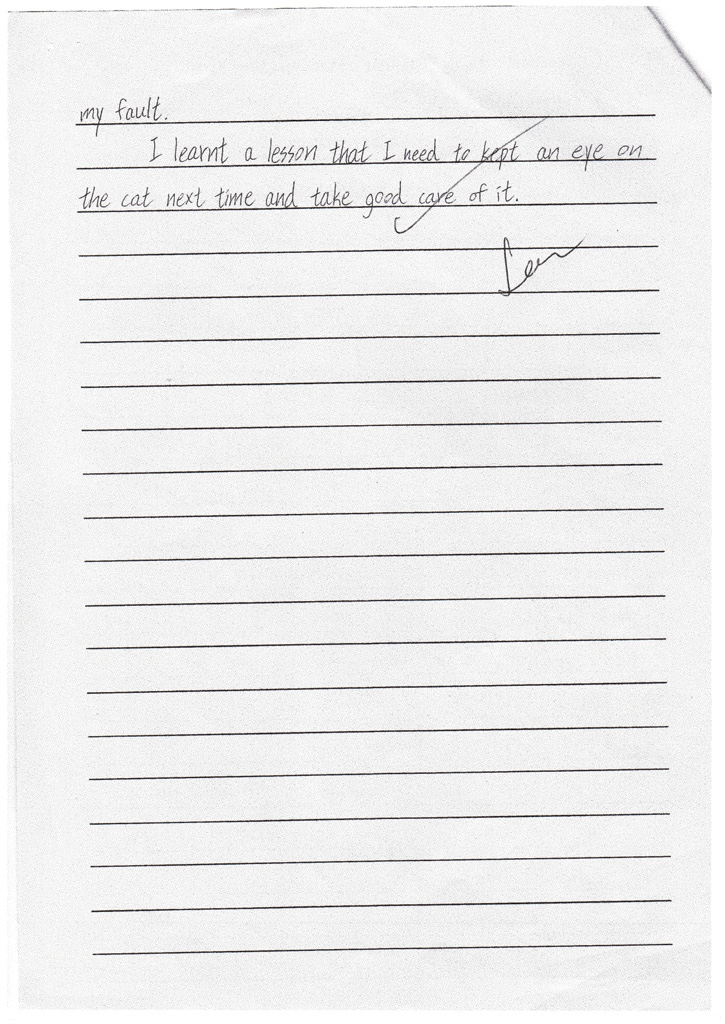 my fault.
I learnt a lesson that I need to kept an eye on
the cat next time and take good care of it.